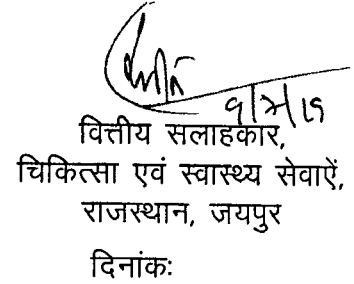 वित्तीय सलाहकार,
चिकित्सा एवं स्वास्थ्य सेवाऐं,
राजस्थान, जयपुर
दिनांकः